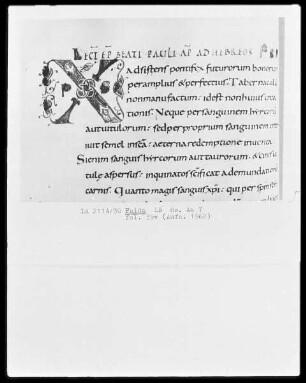 LECT EP BEATI PAULI AP AD HEBREOS
adsistens pontifex futurorum bonorum
per amplius & perfectius. Tabernaculum
non manufactum: id est non huius crea
tionis. Neque per sanguinem hircorum
aut vitulorum: sed per proprium sanguinem int
iuit semel in sancta: aeterna redemptione inuenta
Si enim sanguis hircorum aut taurorum & cinis ui
tulae aspersus: inquinatos sctificat ad emundationem
carnis. Quanto magis sanguis xpi: qui per spm scm
La 2114/30 Fulda LB Hs. Aa 7
Fol. (Aufn. 1962)